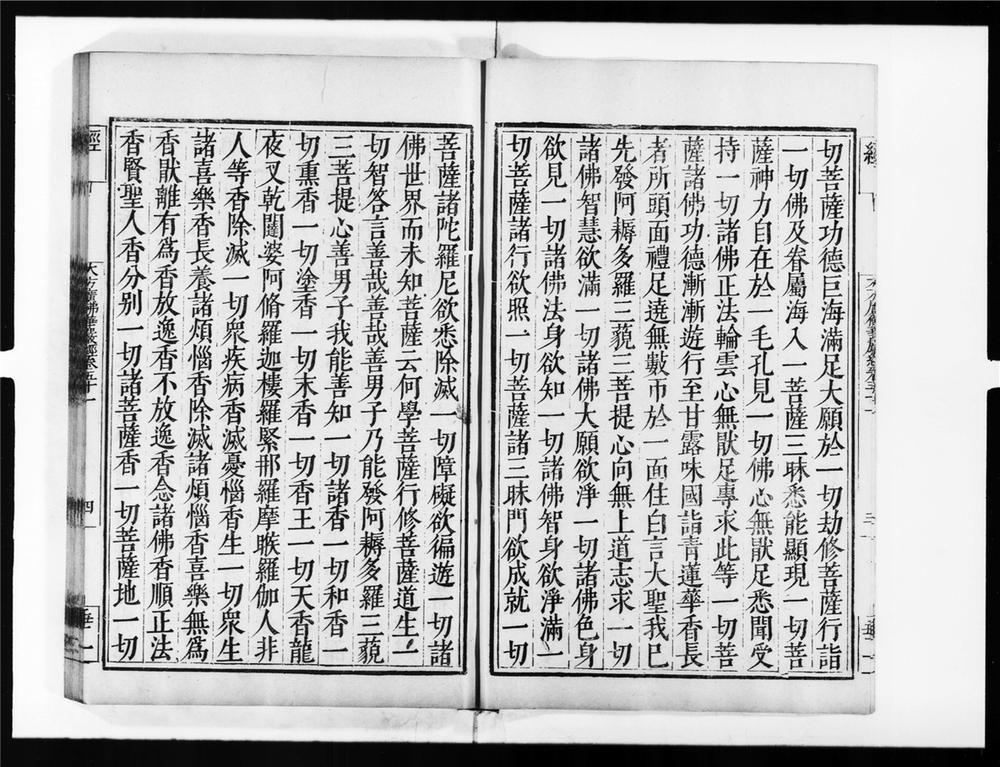 切菩薩功德巨海滿足大願於一切劫修菩薩行詣
一切佛及眷屬海入一菩薩三昧悉能顯現一切菩
薩神力自在於一毛孔見一切佛心無猒足悉聞受
持一切諸佛正法輪雲心無猒足專求此等一切菩
薩諸佛功德漸漸遊行至甘露味國詣青蓮華香長
者所頭面禮足遶無數帀於一面住白言大聖我已
先發阿耨多羅三藐三菩提心向無上道志求一切
諸佛智慧欲滿一切諸佛大願欲淨一切諸佛色身
欲見一切諸佛法身欲知一切諸佛智身欲淨滿一
切菩薩諸行欲照一切菩薩諸三昧門欲成就一切
菩薩諸陀羅尼欲悉除滅一切障礙欲徧遊一切諸
佛世界而未知菩薩云何學菩薩行修菩薩道生一
切智答言善哉善哉善男子乃能發阿耨多羅三藐
三菩提心善男子我能善知一切諸香一切和香一
切熏香一切塗香一切末香一切香王一切天香龍
夜叉乾闥婆阿脩羅迦樓羅緊那羅摩睺羅伽人非
人等香除滅一切衆疾病香滅憂惱香生一切衆生
諸喜樂香長養諸煩惱香除滅諸煩惱香喜樂無爲
香猒離有爲香放逸香不放逸香念諸佛香順正法
香賢聖人香分别一切諸菩薩香一切菩薩地一切
經
大方廣佛華嚴經卷五十一
四